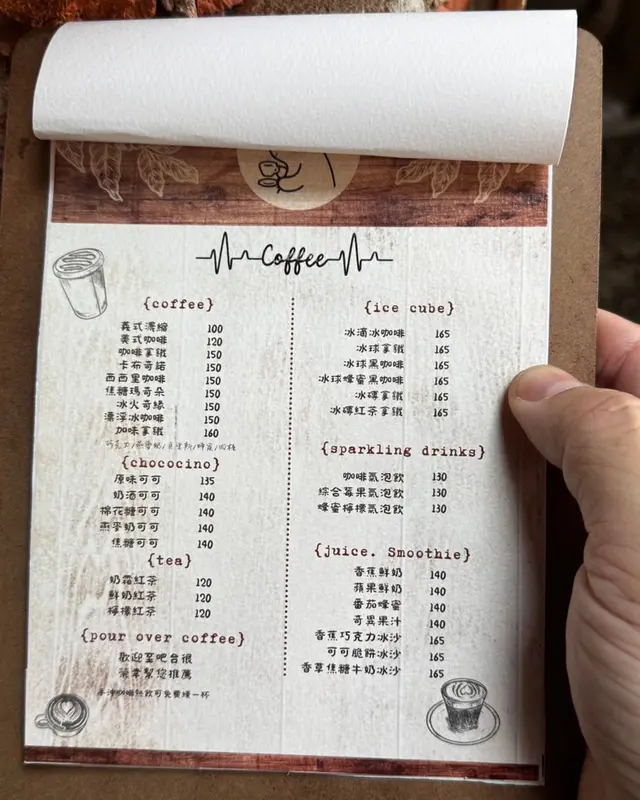 Coffee
{coffee}
義式濃縮 100
美式咖啡 120
咖啡拿鐵 150
卡布奇諾 150
西西里咖啡 150
焦糖瑪奇朵 150
冰火奇緣 150
漂浮冰咖啡 150
加味拿鐵 160
巧克力/燕麥奶/貝里斯/蜂蜜/肉桂
{chococino}
原味可可 135
奶酒可可 140
棉花糖可可 140
燕麥奶可可 140
焦糖可可 140
{tea}
奶霜紅茶 120
鮮奶紅茶 120
檸檬紅茶 120
{pour over coffee}
歡迎至吧台很
榮幸幫您推薦
手沖咖啡熱飲可免費續一杯
{ice cube}
冰滴冰咖啡 165
冰球拿鐵 165
冰球黑咖啡 165
冰球蜂蜜黑咖啡 165
冰磚拿鐵 165
冰磚紅茶拿鐵 165
{sparkling drinks}
咖啡氣泡飲 130
綜合莓果氣泡飲 130
蜂蜜檸檬氣泡飲 130
{juice. Smoothie}
香蕉鮮奶 140
蘋果鮮奶 140
番茄蜂蜜 140
奇異果汁 140
香蕉巧克力冰沙 165
可可脆餅冰沙 165
香草焦糖牛奶冰沙 165